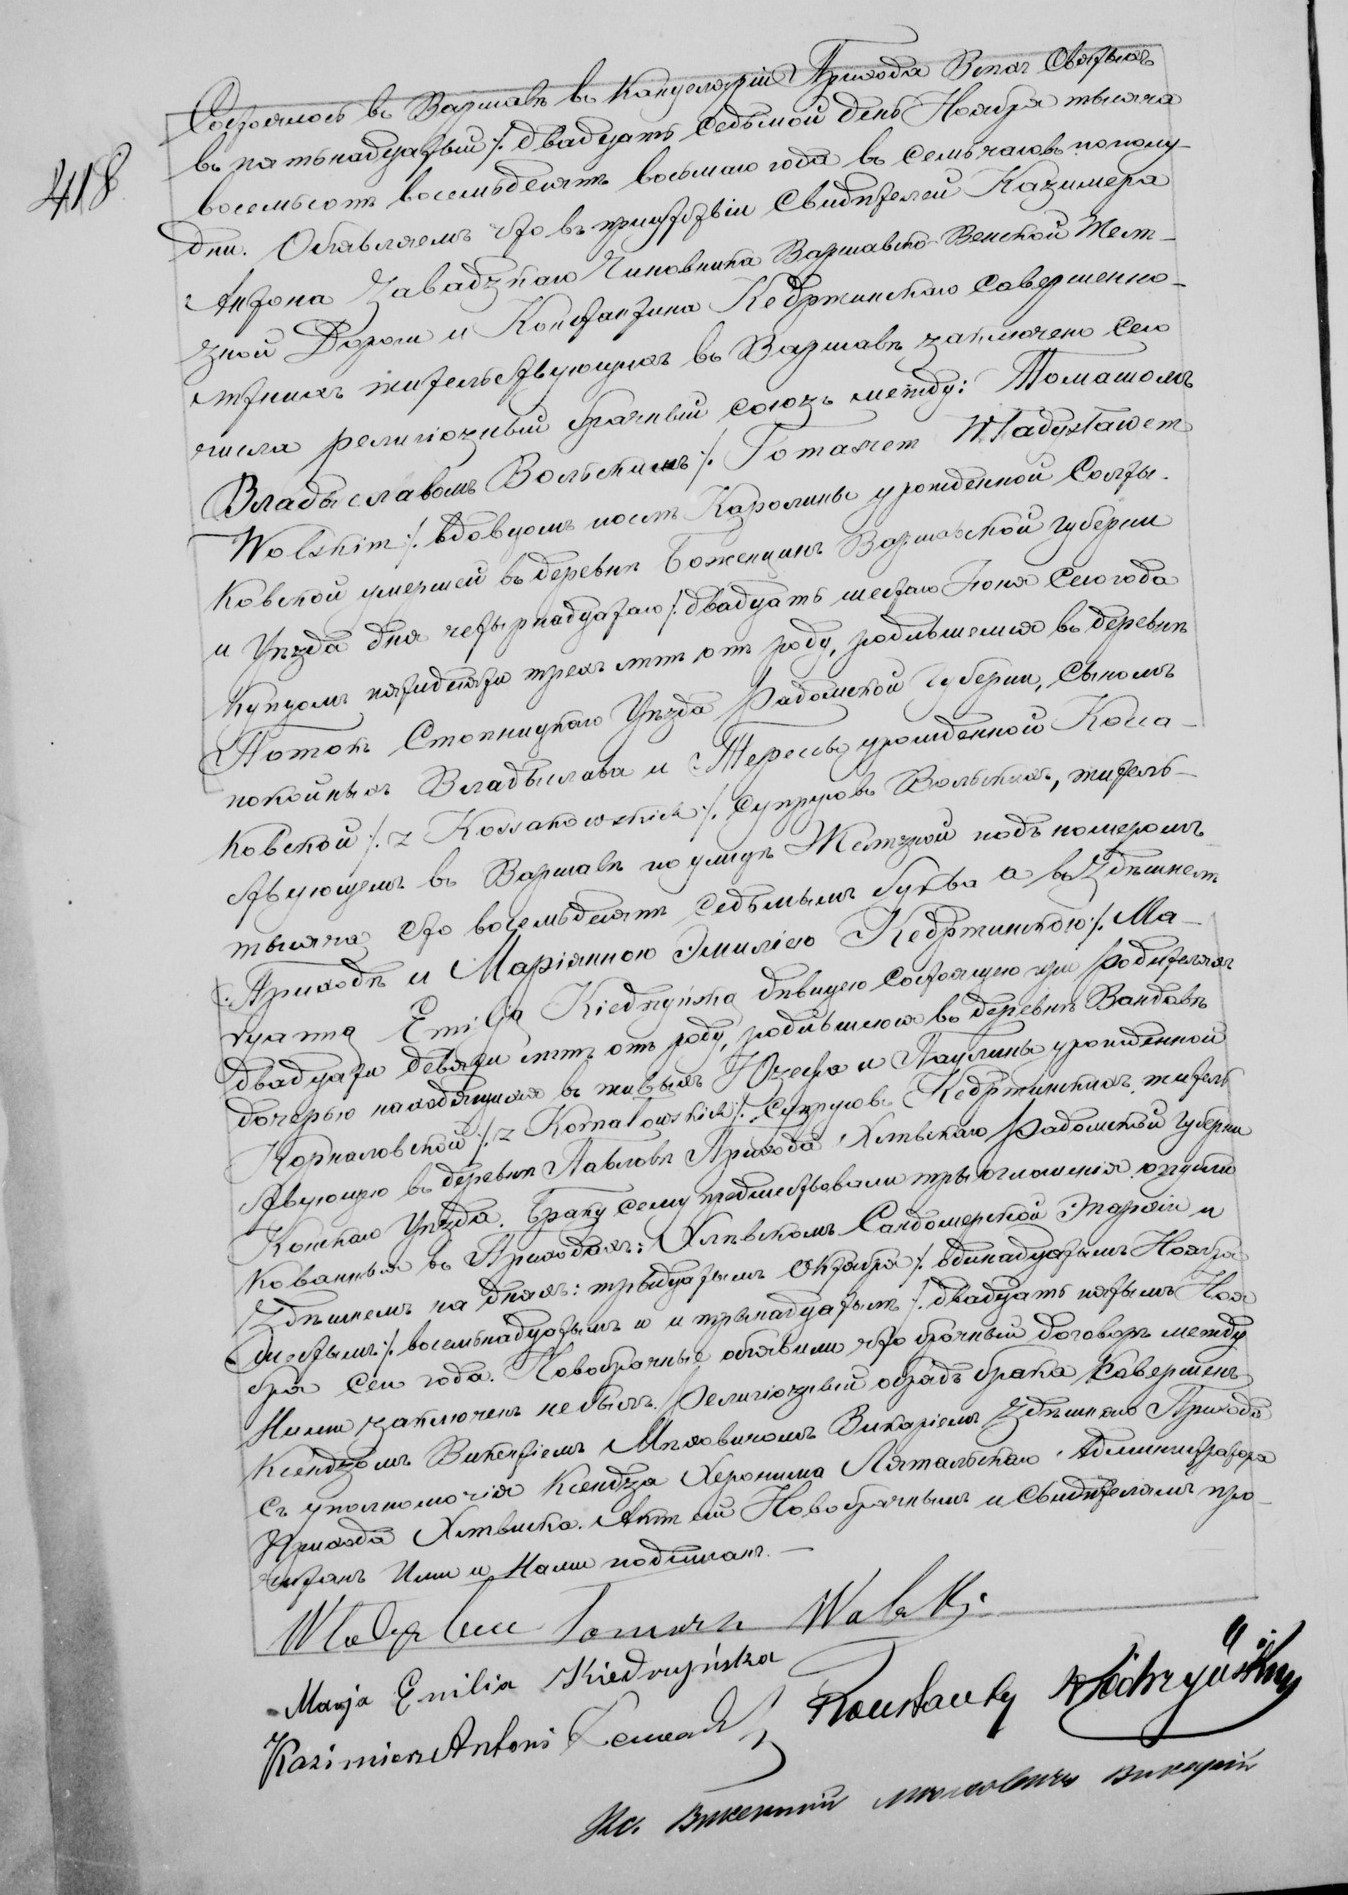 418
Состоялось въ Варшавѣ въ Канцеляріи Прихода Всѣхъ Святыхъ
въ пятьнадцатый /: двадцать седьмой день Ноября тысяча
восемьсотъ восемьдесятъ восьмаго года въ семь часовъ пополу-
дни. Объявляемъ что въ присутствіи Свидѣтелей Казимера
Антона Завадзкаго Чиновника Варшавско-Венской Желѣ-
зной Дороги и Константина Кедржинскаго совершенно-
лѣтнихъ жительствующихъ въ Варшавѣ заключено сего
числа религіозный брачный союзъ между: Томашомъ
Владыславомъ Вольскимъ /: Tomaszem Władysławem
Wolskim /: вдовцомъ послѣ Каролины урожденной Солты-
ковской умершей въ деревнѣ Боженцинъ Варшавской Губерніи
и Уѣзда дня четырнадцатаго /: двадцать шестаго Іюня сего года
купцомъ пятидесяти трехъ лѣтъ отъ роду, родившемся въ деревнѣ
Потокъ Стопницкаго Уѣзда Радомской Губерніи, сыномъ
покойныхъ Владыслава и Терессы урожденной Косса-
ковской /: z Kossakowskich /: супруговъ Вольскихъ, житель-
ствующемъ въ Варшавѣ по улицѣ Желѣзной подъ номеромъ
тысяча сто восемьдесятъ седьмымъ буква а въ Здѣшнемъ
Приходѣ и Маріянною Эмиліею Кедржинскою /: Ma-
ryanną Emilją Kiedrzyńską дѣвицею состоящею при родителяхъ
двадцати девяти лѣтъ отъ роду, родившеюся въ деревнѣ Вандовѣ
дочерью находящихся въ живыхъ Юзефа и Паулины урожденной
Корналовской /: z Kornalowskich /: Супруговъ Кедржинскихъ, житель
ствующею въ деревнѣ Павловѣ Прихода Хлѣвскаго Радомской Губерніи
Конскаго Уѣзда. Браку сему предшествовали три оглашенія опубли
кованныя въ Приходахъ: Хлѣвскомъ Сандомерской Эпархіи и
Здѣшнемъ на дняхъ: тридцатымъ Октября /: одинадцатымъ Ноября
шестымъ /: восемьнадцатымъ и и тринадцатымъ /: двадцать пятымъ Ноя
бря сего года. Новобрачные объявили что брачный договоръ между
Ними заключенъ небылъ. Религіозный обрядъ брака совершенъ
Ксендзомъ Викентіемъ Мѣховичомъ Викаріемъ Здѣшняго Прихода
съ уполномочія Ксендза Херонима Администратора
Прихода Хлѣвиска. Актъ сей Новобрачнымъ и свидѣтелямъ про-
читанъ Ими и Нами подписанъ. —
Władysław Tomasz Wolski
Marja Emilia Kiedrzyńska
Kazimierz Antoni Zawadzki Konstanty Kiedrzyński
Кс. Викентій Мѣховичъ Викарій